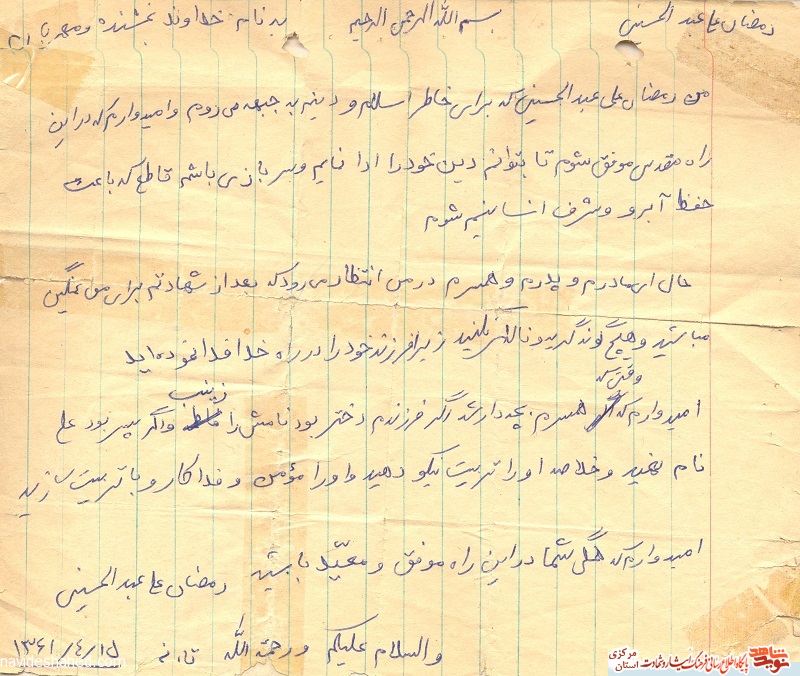 رمضان علی عبدالحسینی بسم الله الرحمن الرحیم به نام خداوند بخشنده و مهربان
من رمضان علی عبدالحسینی که برای خاطر اسلام و دینم به جبهه می روم و امیدوارم که در این
راه مقدس موفق شوم تا بتوانم دین خود را ادا نمایم و سربازی باشم قاطع که باعث
حفظ آبرو و شرف انسانیم شوم
حال ای مادرم و پدرم و همسرم در من انتظار می رود که بعد از شهادتم برای من غمگین
مباشید و هیچ گونه گریه و ناله ای نکنید زیرا فرزند خود را در راه خدا فدا نموده اید
وقتی که
امیدوارم که همسرم بچه دار شد اگر فرزندم دختر بود نامش را زینب و اگر پسر بود علی
نام نهید و خلاصه او را تربیت نیکو دهید و او را مؤمن و فداکار و با تربیت سازید
امیدوارم که همگی شما در این راه موفق و مؤید باشید رمضان علی عبدالحسینی
والسلام علیکم و رحمة الله ۱۳۶۱/۴/۱۵
نوید شاهد
پایگاه اطلاع رسانی فرهنگ ایثار و شهادت
استان مرکزی
navideshahed.com